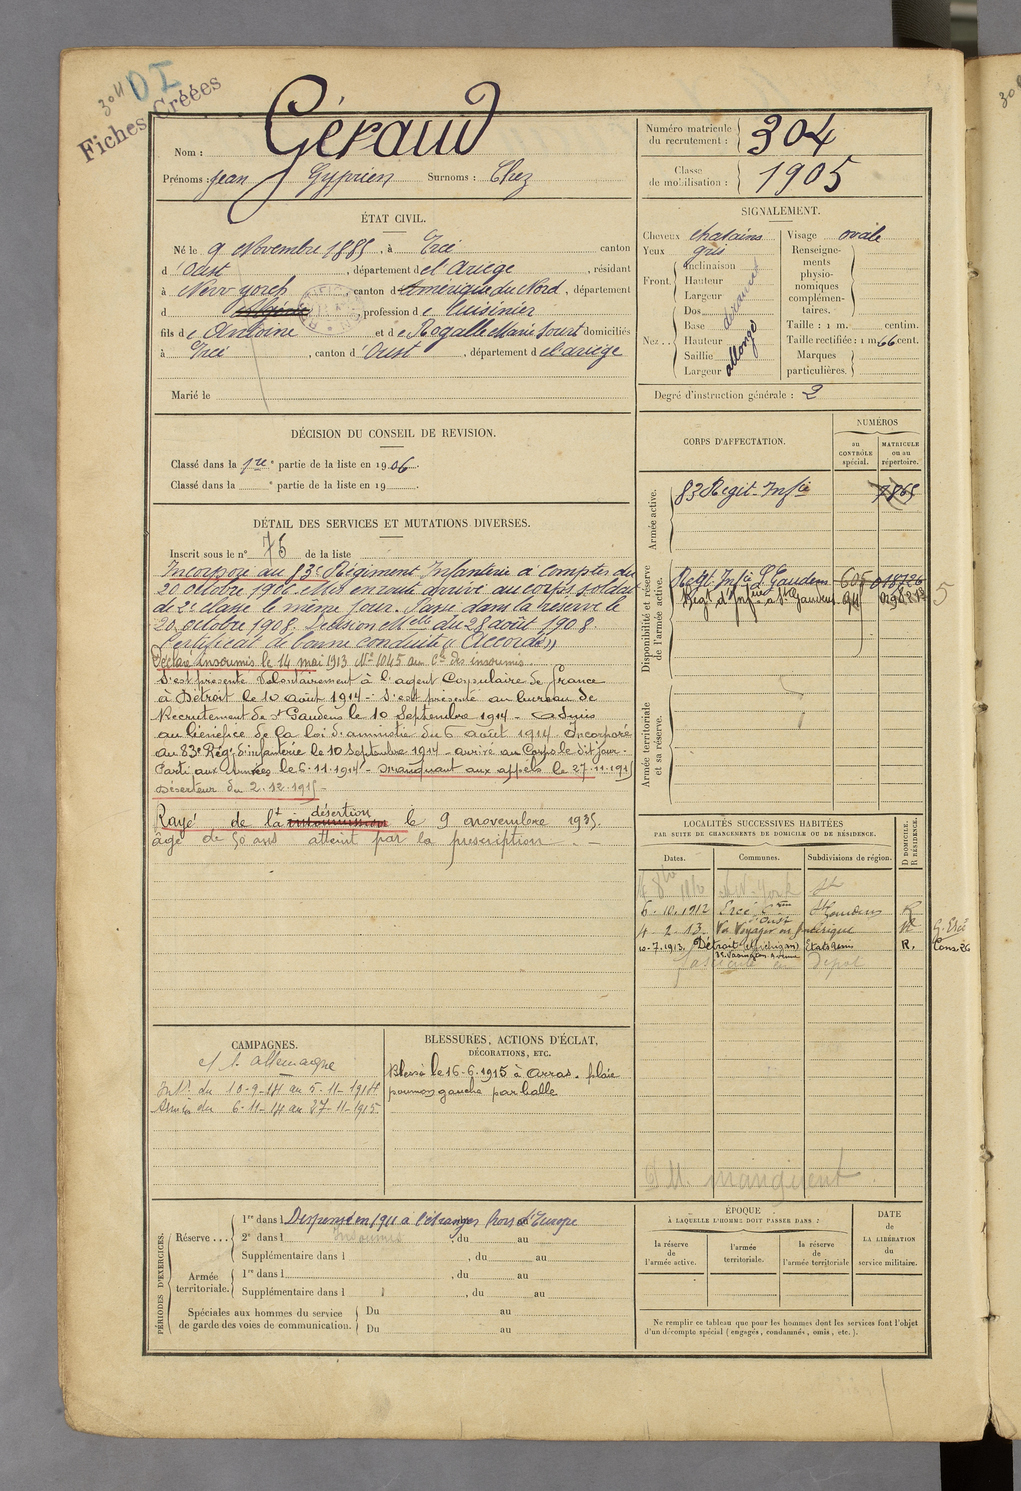 304
DI
Fiches Créées
Nom : Géraud
Prénoms : Jean Cyprien Surnoms : Chez
Numéro matricule du recrutement : 304
Classe de mobilisation : 1905
ÉTAT CIVIL.
Né le 9 Novembre 1885, à Ercé canton
d'Oust, département de l'Ariège, résidant
à New yorck, canton d'Amérique du Nord, département
d , profession de Cuisinier
fils de Antoine et de Rogalle Marie Jourt domiciliés
à Ercé, canton d'Oust, département de l'ariège
Marié le
SIGNALEMENT.
Cheveux chatains
Yeux gris
Front. Inclinaison
Hauteur
Largeur
découvert
Nez . . Dos
Base
Hauteur
Saillie
Largeur
allongé
Visage ovale
Renseigne-
ments
physio-
nomiques
complémen-
taires.
Taille : 1 m. centim.
Taille rectifiée : 1 m 66 cent.
Marques
particulières.
Degré d'instruction générale : 2
DÉCISION DU CONSEIL DE REVISION.
Classé dans la 1re partie de la liste en 1906.
Classé dans la ° partie de la liste en 19
DÉTAIL DES SERVICES ET MUTATIONS DIVERSES.
Inscrit sous le n° 76 de la liste
Incorporé au 83e Régiment Infanterie à compter du
20 octobre 1906. Mis en route arrivé au corps soldat
de 2e classe le même jour. Passé dans la réserve le
20 octobre 1908. Décision Melle du 28 août 1908.
Certificat de bonne conduite "Accordé"
Déclaré insoumis le 14 mai 1913 No 1045 au Cle des insoumis
S'est présenté volontairement à l'agent Consulaire de France
à Détroit le 10 août 1914 - S'est présenté au bureau de
Recrutement de St Gaudens le 10 Septembre 1914 - Admis
au bénéfice de la loi d'amnistie du 6 août 1914 - Incorporé
au 83e Régt d'infanterie le 10 Septembre 1914 - arrivé au Corps le dit jour -
Parti aux Armées le 6.11.1914 - manquant aux appels le 27.11.1915
Déserteur du 2.12.1915 -
Rayé de la désertion insoumission le 9 novembre 1935.
âgé de 50 ans atteint par la prescription. -
CORPS D'AFFECTATION.
NUMÉROS
au CONTRÔLE spécial.
MATRICULE ou au répertoire.
Armée active.
83 Régit Infie 7865
Disponibilité et réserve de l'armée active.
Régt Infie St Gaudens 605 018726
Régt d'Infrie à St Gaudens 94
5
Armée territoriale et sa réserve.
LOCALITÉS SUCCESSIVES HABITÉES
PAR SUITE DE CHANGEMENTS DE DOMICILE OU DE RÉSIDENCE.
Dates. Communes. Subdivisions de région. D DOMICILE. R RÉSIDENCE.
New-York
6-10.1912 Ercé Con d'Oust St Gaudens R
4-2-13. Va Voyager en Amérique
10-7.1913. Détroit (Michigan) Etats Unis R. Cons. 26
fascicule en dépôt
CAMPAGNES.
c/ l'allemagne
Intr. du 10-9-14 au 5-11-1914
Armées du 6-11-14 au 27-11-1915.
BLESSURES, ACTIONS D'ÉCLAT,
DÉCORATIONS, ETC.
Blessé le 16-6.1915 à Arras. plaie
poumon gauche par balle
manquent
PÉRIODES D'EXERCICES.
Réserve . . . 1re dans l Dispensé en 1911 a l'étranger hors d'Europe
2e dans l Insoumis , du au
Supplémentaire dans l , du au
Armée territoriale. 1re dans l , du au
Supplémentaire dans l , du au
Spéciales aux hommes du service de garde des voies de communication. Du au
Du au
ÉPOQUE
À LAQUELLE L'HOMME DOIT PASSER DANS :
la réserve de l'armée active.
l'armée territoriale.
la réserve de l'armée territoriale
DATE de LA LIBÉRATION du service militaire.
Ne remplir ce tableau que pour les hommes dont les services font l'objet
d'un décompte spécial (engagés, condamnés, omis, etc.).